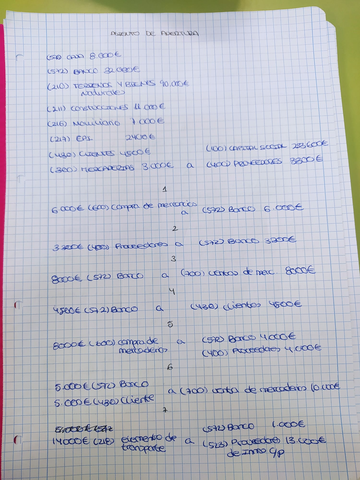 ASIENTO DE APERTURA
(570) CAJA 8.000€
(572) BANCO 32.000€
(210) TERRENOS Y BIENES 90.000€
naturales
(211) CONSTRUCCIONES
(216) Mobiliario
(217) EPI 2400€
(430) CLIENTES 4500€ (100) CAPITAL SOCIAL
(300) MERCADERIAS 3.000€ a (400) PROVEEDORES
1
6.000€ (600) compra de mercaderia
a (572) Banco 6.000€
2
(400) Proveedores a (572) Banco
3
8000€ (572) Banco a (700) ventas de merc. 8000€
4
4500€ (572) Banco a (430) clientes 4500€
5
8000€ (600) compra de a (572) Banco 4.000€
mercaderias (400) Proveedores 4.000€
6
5.000€ (572) Banco
a (700) venta de mercaderias 10.000€
5.000€ (430) Cliente
7
(572) Banco 1.000€
14000€ (218) elemento de a (523) Proveedores 13.000€
transporte de inmo c/p